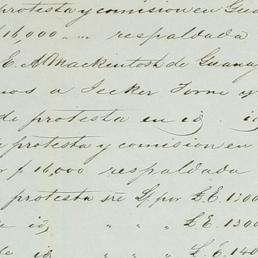 protesta y comision en Gua
16,000 " " respaldada
E. A Mackintosh de Guana
nos a Jecker Torre y
de protesta en id. id
protesta y comision en
r f 16,000 respaldada
protesta sre L/ por £.E. 1300
id " " " £E. 1300
de id " " " £.E. 140